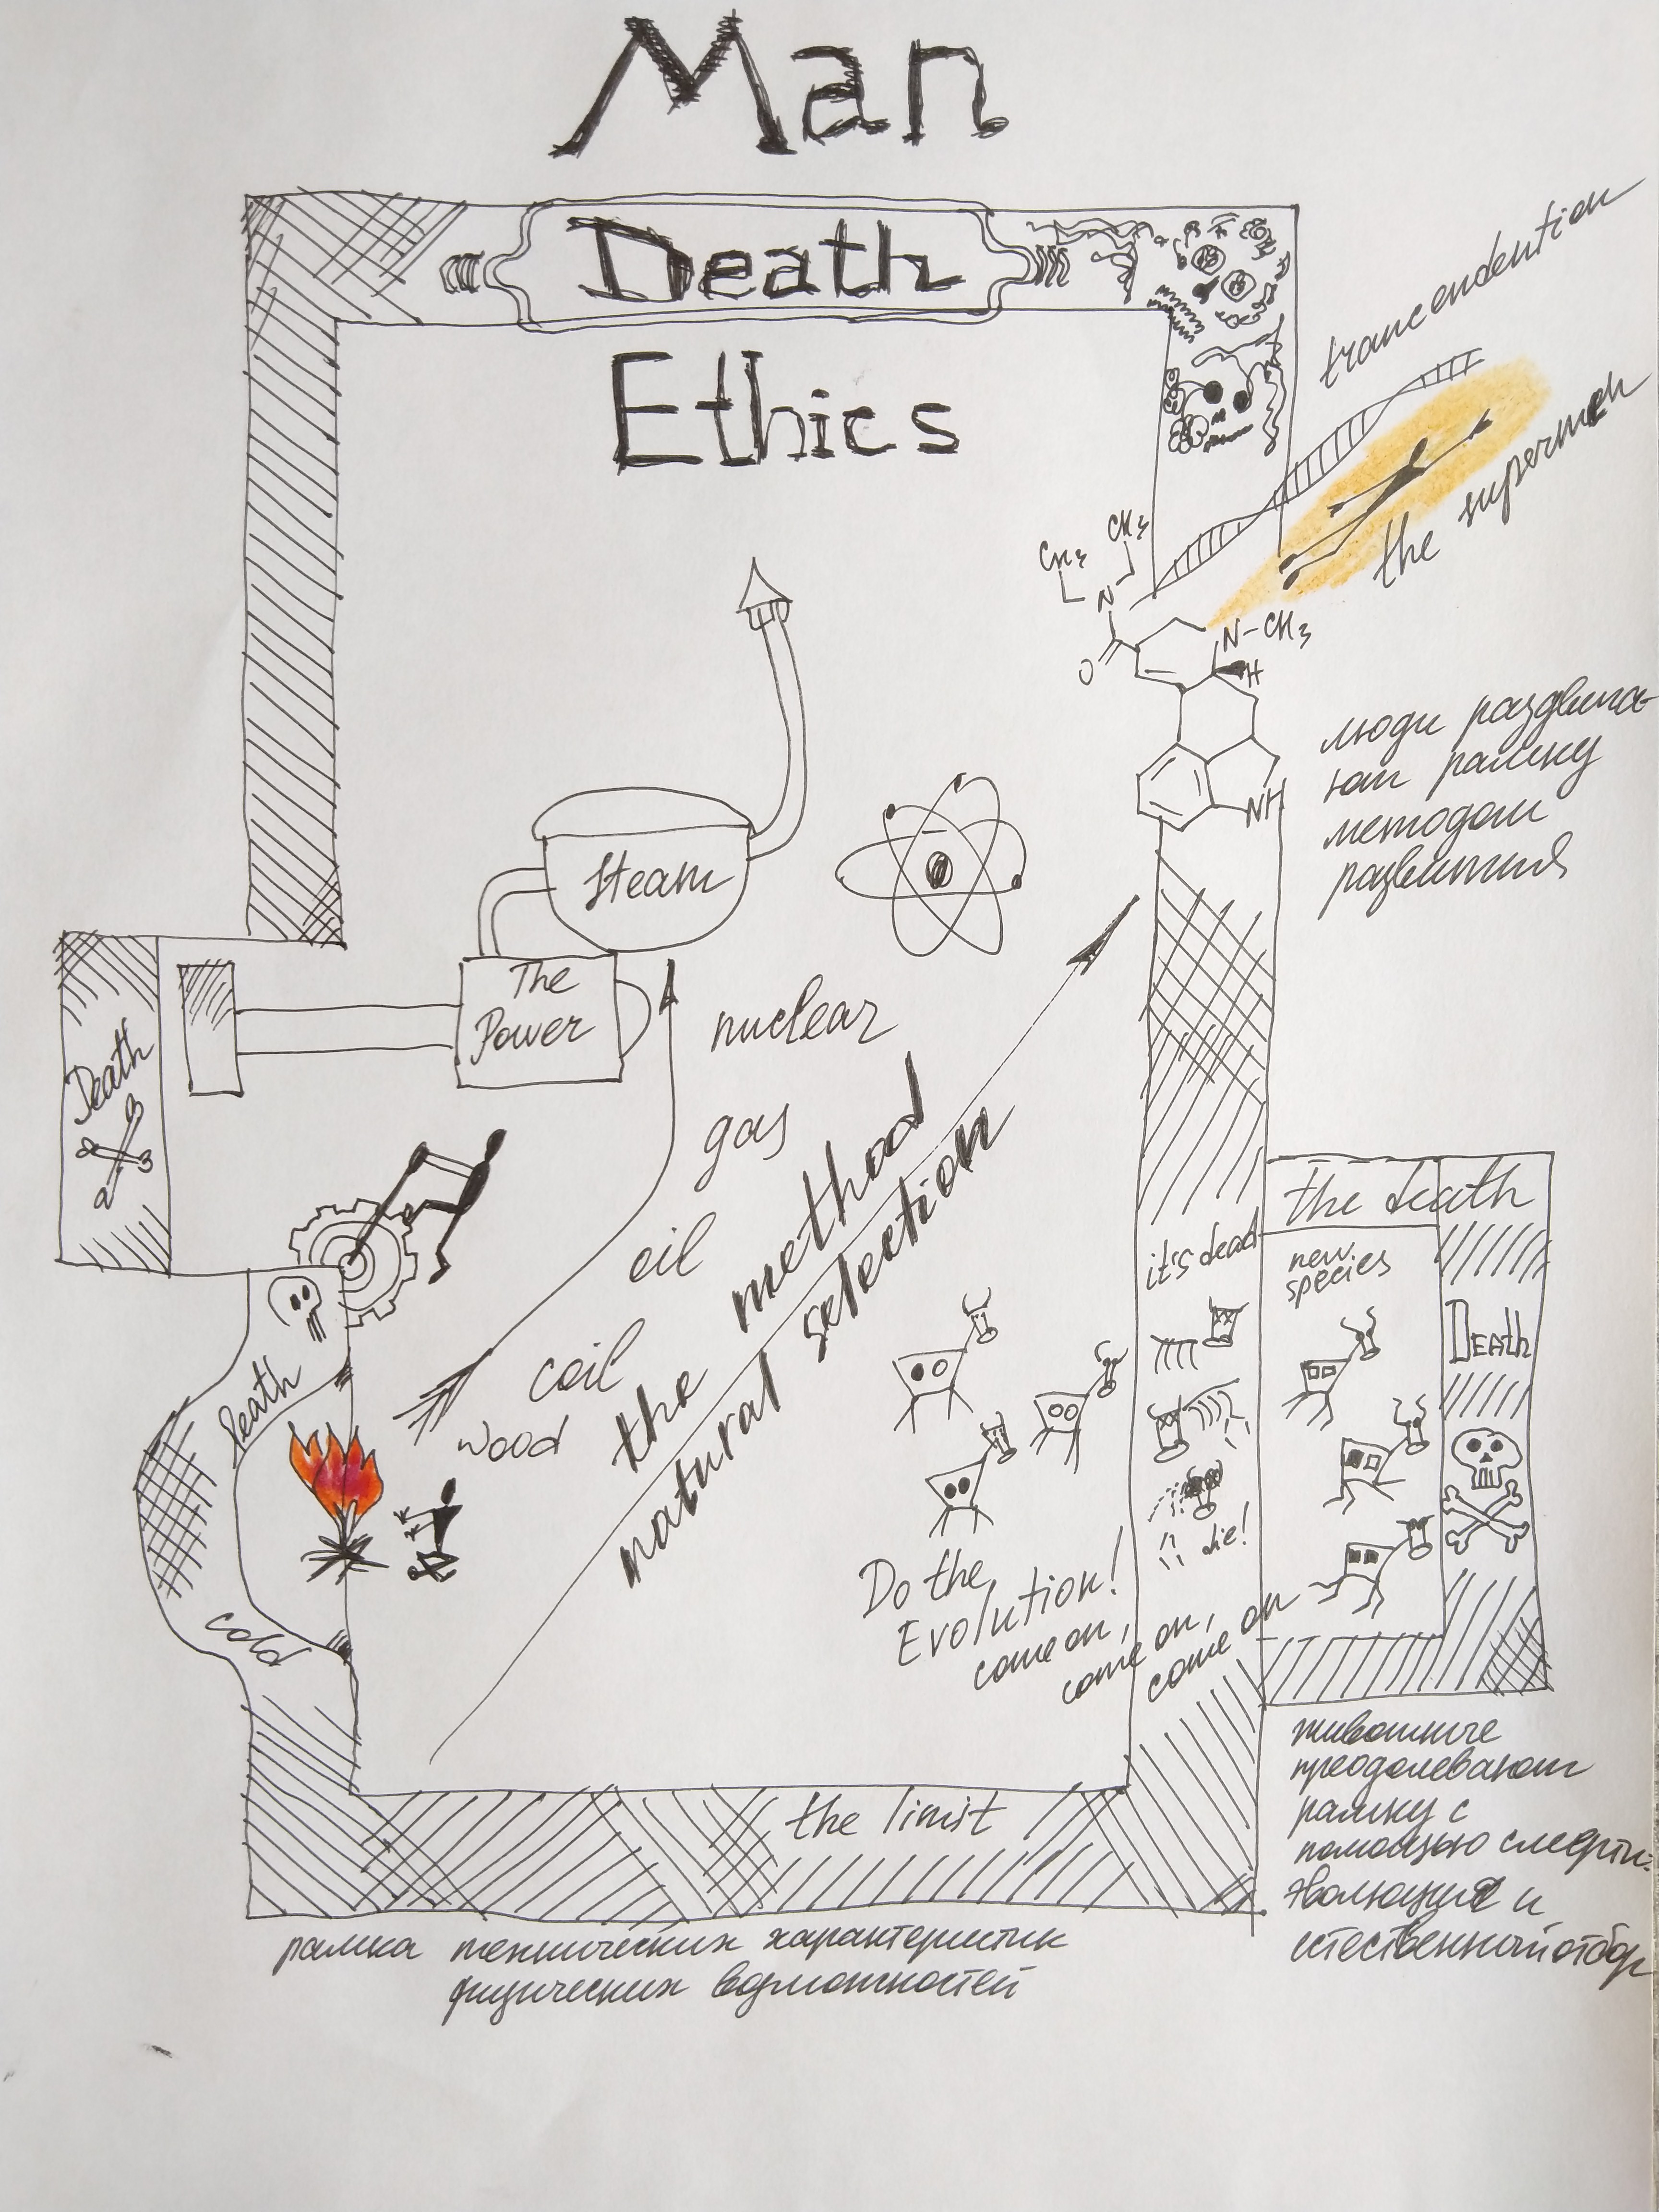 Man
Death
Ethics
trancendention
the supermen
CH3
CH3
N
O
N-CH3
H
NH
люди раздвига-
ют рамку
методом
развития
Steam
The
Power
Death
nuclear
gas
oil
coil
wood
the method
natural selection
death
cold
it's dead
the death
new
species
Death
die!
Do the
Evolution!
come on,
come on,
come on
the limit
животные
преодолевают
рамку с
помощью смерти:
эволюция и
естественный отбор
рамка технических характеристик
физических возможностей